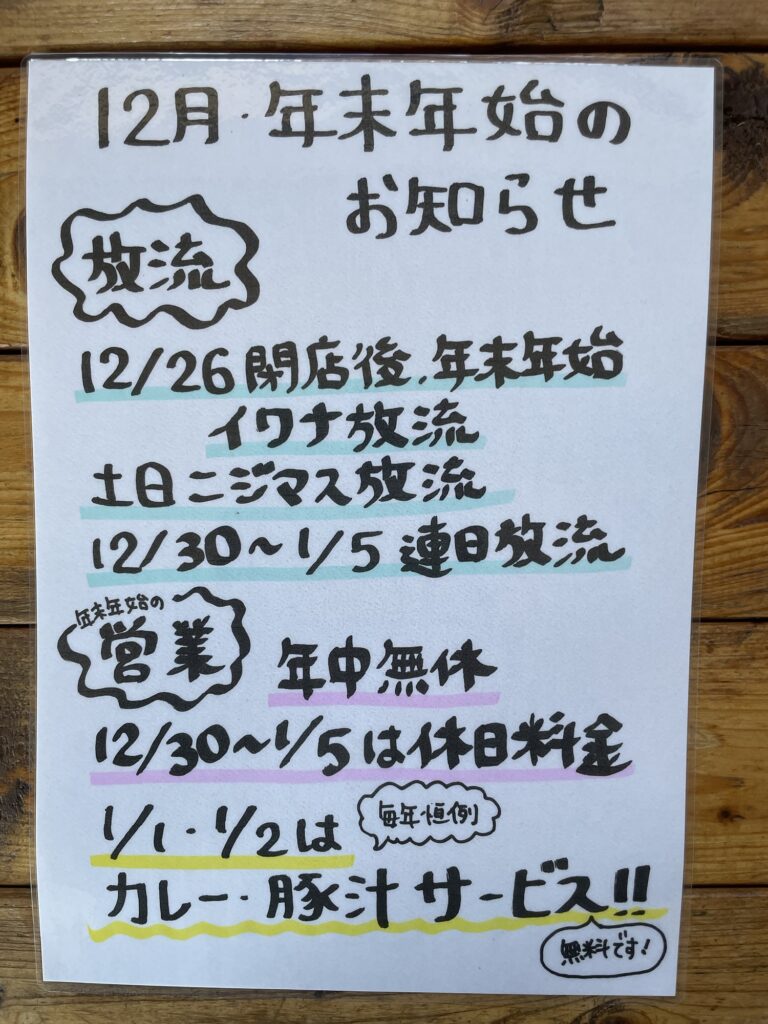 12月・年末年始の
お知らせ
放流
12/26閉店後、年末年始
イワナ放流
土日ニジマス放流
12/30～1/5 連日放流
年末年始の
営業
年中無休
12/30～1/5は休日料金
1/1・1/2は
毎年恒例
カレー・豚汁サービス!!
無料です!